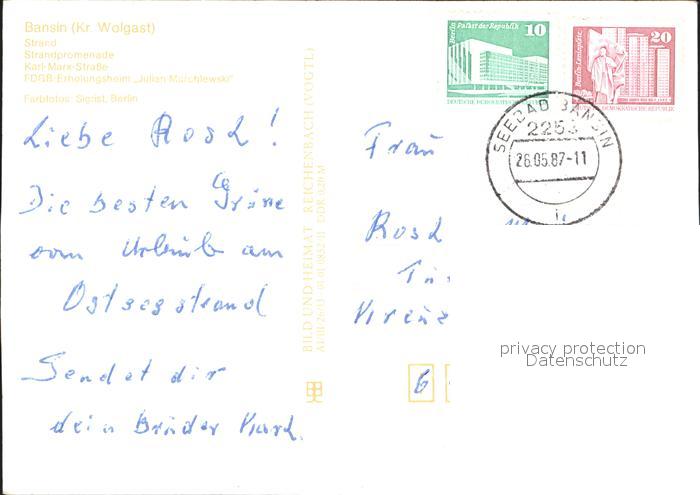 Bansin (Kr. Wolgast)
Strand
Strandpromenade
Karl-Marx-Straße
FDGB-Erholungsheim „Julian Marchlewski"
Farbfotos: Sigrist, Berlin
Liebe Rosl!
Die besten Grüße
vom Urlaub am
Ostseestrand
Sendet dir
dein Bruder
BILD UND HEIMAT REICHENBACH (VOGTL)
Berlin Palast der Republik 10
Berlin-Leninplatz 20
DEUTSCHE DEMOKRATISCHE REPUBLIK
SEEBAD BANSIN
2253
26.05.87-11
Frau
Rosl
6
privacy protection
Datenschutz